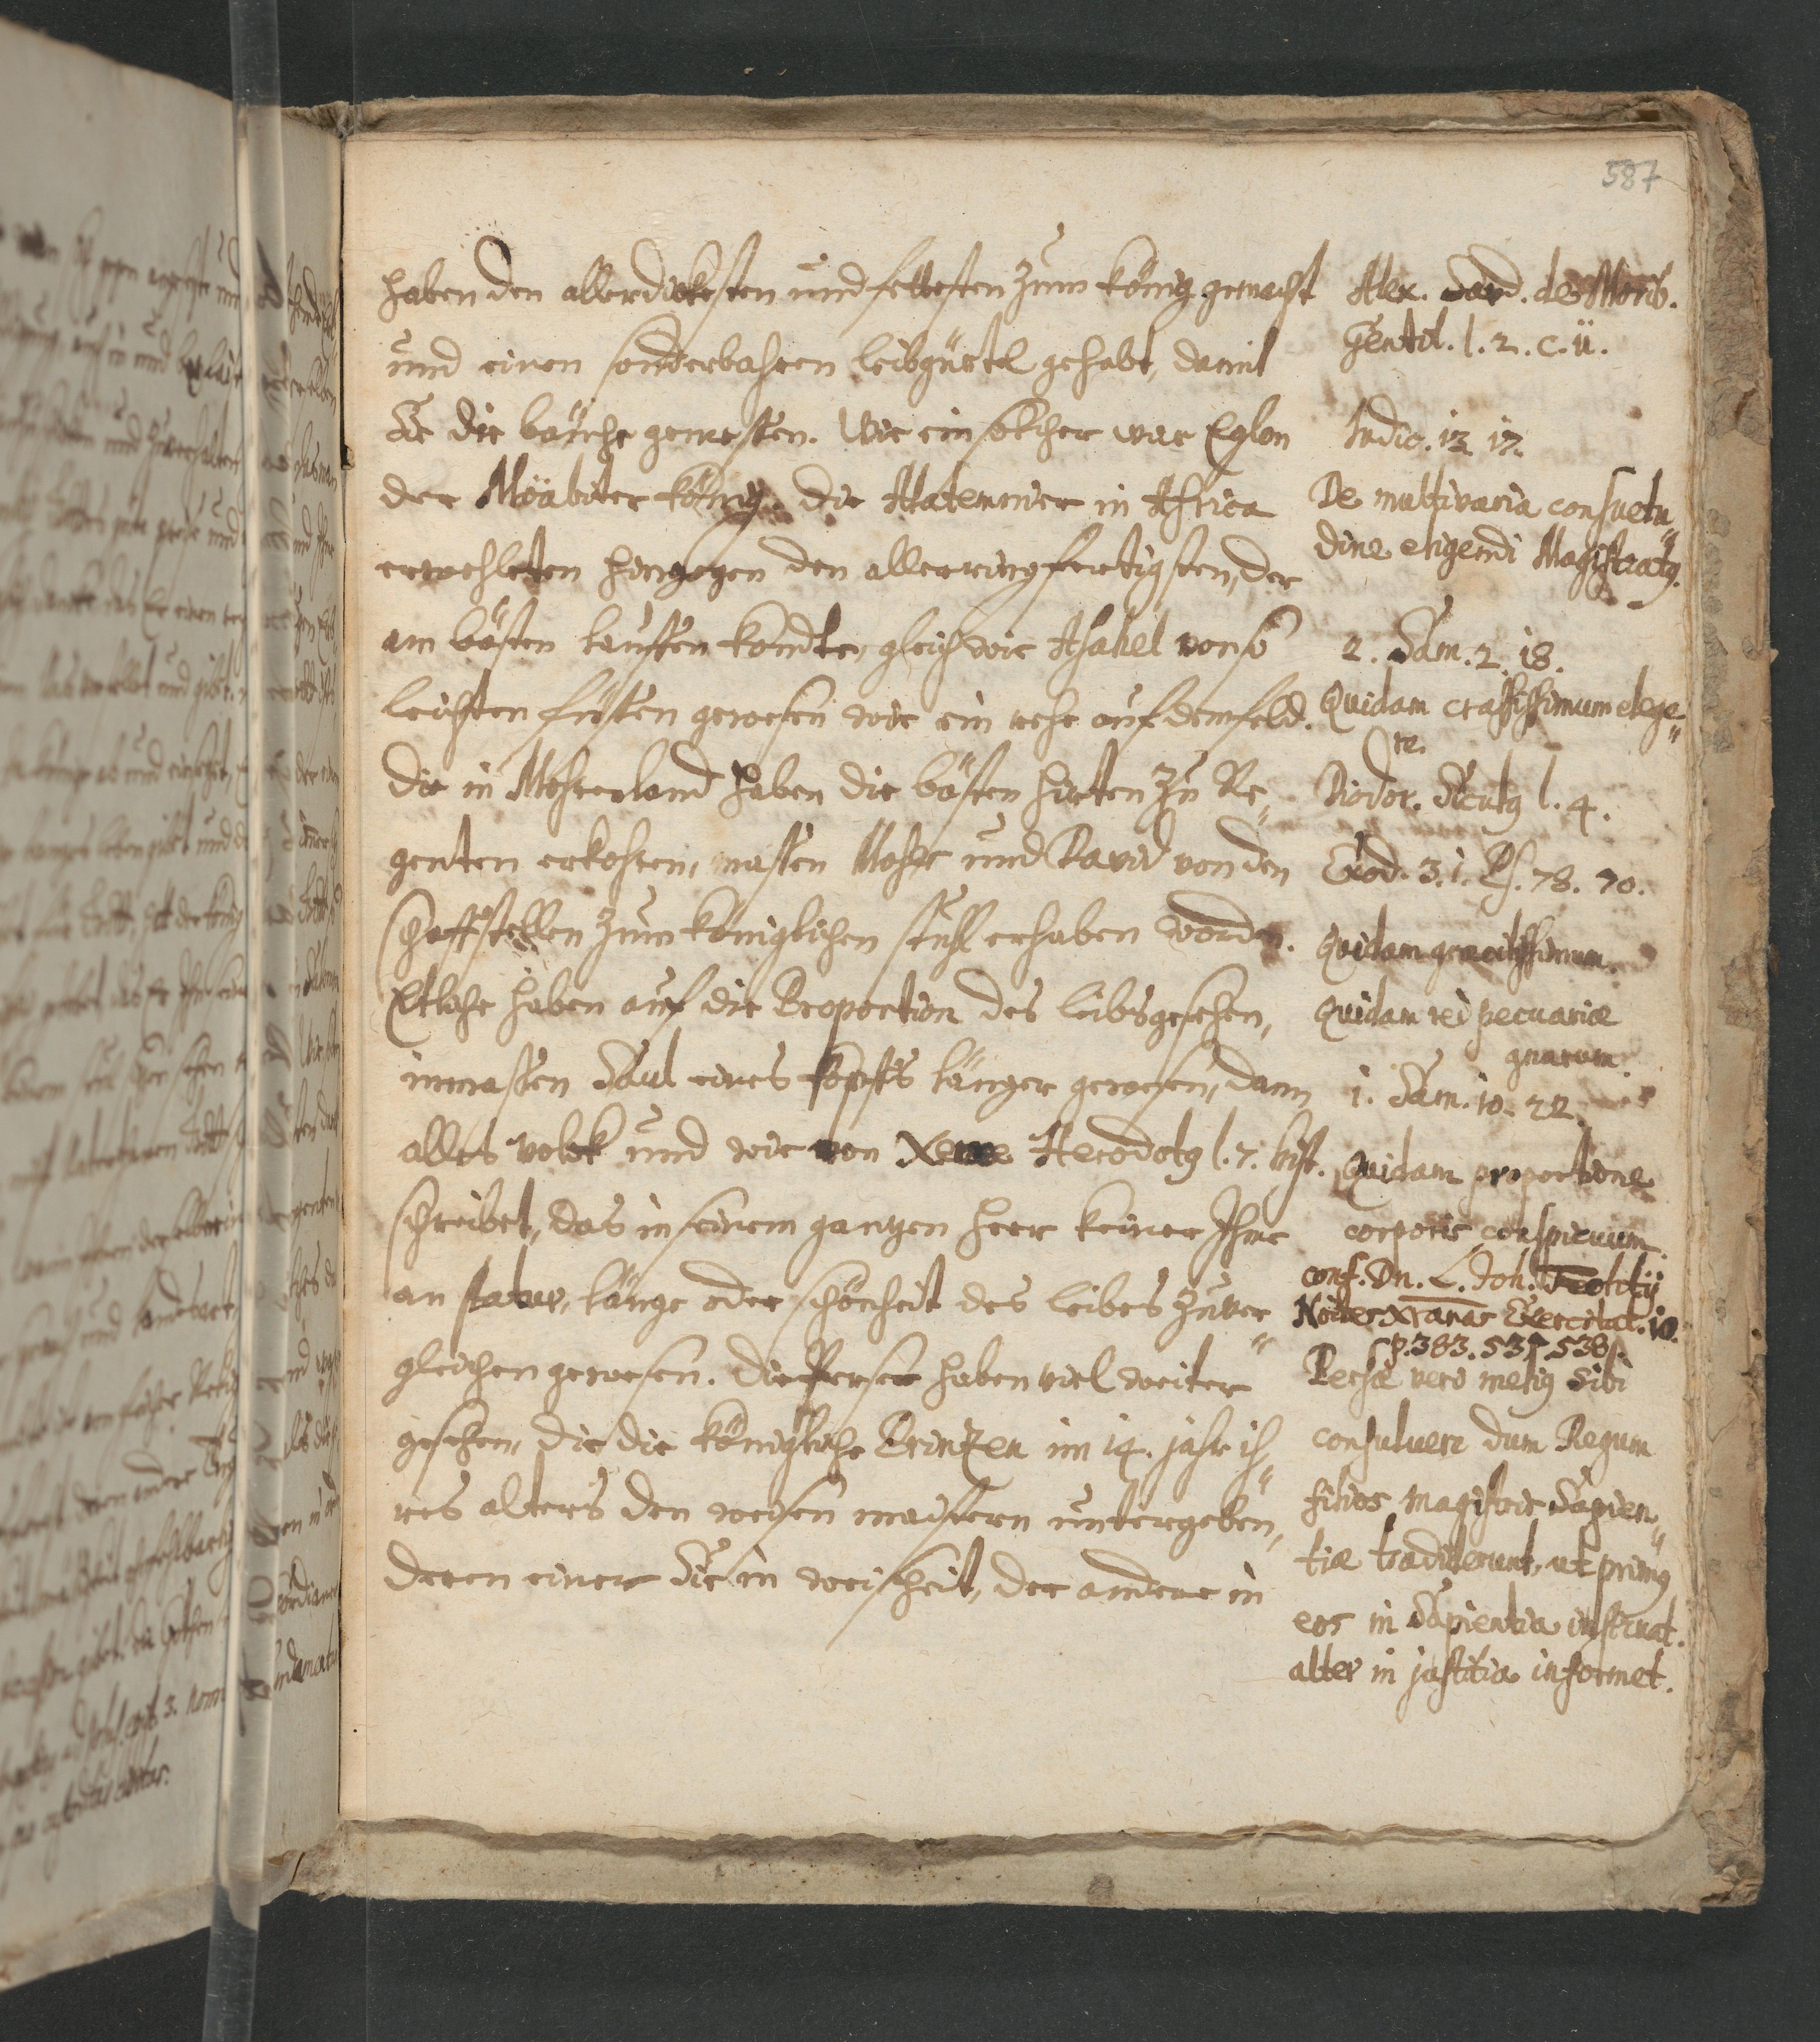 587
haben den allerdickesten und fettesten zum könig gemacht
und einen sonderbahren leibgürtel gehabt, damit
Sie die bäuche gemessen. Wie ein solcher war Eglon
der Moäbiter könig. die Atatennier in Africa
erwehleten hingegen den allerringfertigsten, der
am bästen lauffen kondte, gleich wie Asahel von so
leichten füssen gewesen wie ein rehe auf dem feld.
die in Mohrenland haben die bästen hirten zu Re„
genten erkohren, massen Mose und David von den
schaffställen zum königlichen stuhl erhaben worden.
Etliche haben auf die Proportion des leibs gesehen,
inmassen Saul eines kopffs länger gewesen, dann
alles volck und wie von Xerxe Herodotus l. 7. hist.
schreibet, das in seinem gantzen heer keiner Ihme
an statur, länge oder schönheit des leibes zuver„
gleichen gewesen. die Perser haben viel weiter
gesehen, die die königliche Printzen im 14. jahr ih„
res alters den weisen maistern untergeben,
deren einer Sie in weisheit, der andere in
Alex. ab Alexand. de Morib.
Gentil. l. 2. c. ii.
Judic. 13. 17.
De multivaria consuetu„
dine eligendi Magistratus.
2. Sam. 2. 18.
Quidam crassissimum elege„
re.
Diodor. Siculus l. 4.
Exod. 3. 1. Ps. 78. 70.
Quidam gracilissimum.
Quidam rei pecuariæ
gnarum.
1. Sam. 10. 22.
Quidam proportione
corporis conspicuum.
conf. Dn. L. Joh.
Exercitat. 10.
p. 383. 537. 538.
Persæ vero melius sibi
consuluere dum Regum
filios magistris Sapien„
tiæ tradiderunt, ut primus
eos in Sapientia instruat.
alter in justitia informet.